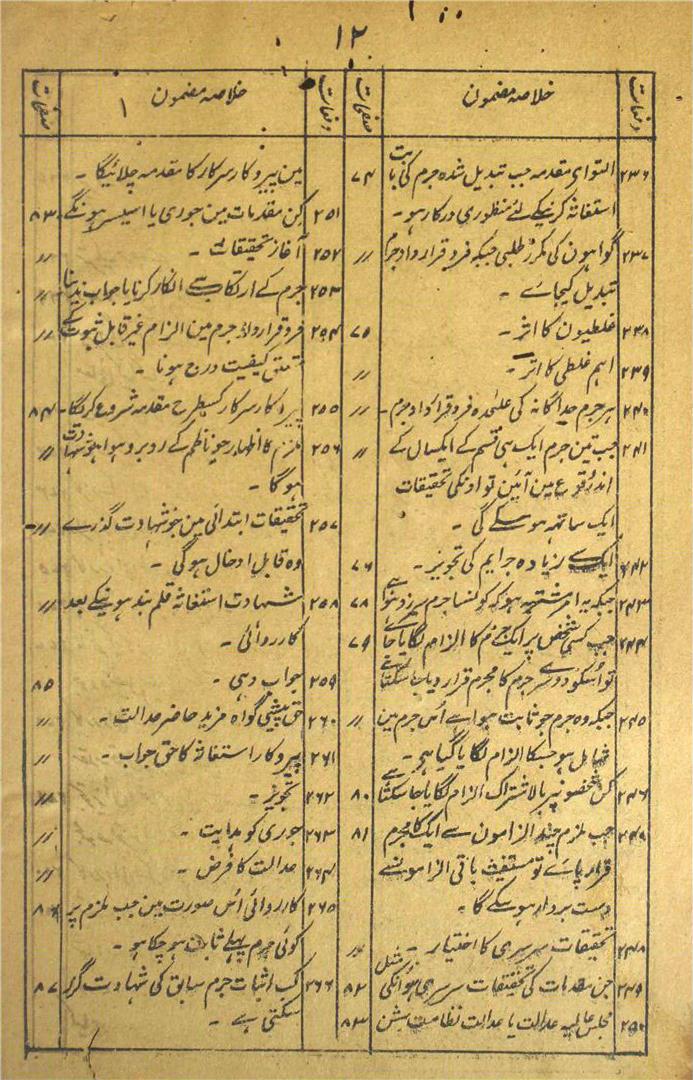 ۱۲
دفعات خلاصہ مضمون صفحات
۲۳۶ التوای مقدمہ جب تبدیل شدہ جرم کی بابت ۷۴
استغاثہ کرنیکے لئے منظوری درکار ہو۔
۲۳۷ گواہون کی مکرر طلبی جبکہ فرد قرارداد جرم //
تبدیل کیجائے۔
۲۳۸ غلطیون کا اثر۔ ۷۵
۲۳۹ اہم غلطی کا اثر۔ //
۲۴۰ ہر جرم جداگانہ کی علیٰحدہ فرد قرارداد جرم۔ //
۲۴۱ جب تین جرم ایک ہی قسم کے ایکسال کے //
اندر وقوع مین آئین تو اونکی تحقیقات
ایک ساتھ ہو سکے گی۔
۲۴۲ ایک سے زیادہ جرایم کی تجویز۔ ۷۶
۲۴۳ جبکہ یہ امر مشتبہ ہو کہ کونسا جرم سرزد ہوا ہے ۷۸
۲۴۴ جب کسی شخص پر ایک جرم کا الزام لگایا جائے ۷۹
تو اُسکو دوسرے جرم کا مجرم قرار دیا جا سکتا ہے
۲۴۵ جبکہ وہ جرم جو ثابت ہوا ہے اُس جرم مین //
شامل ہو جسکا الزام لگایا گیا ہے۔
۲۴۶ کن شخصون پر بالاشتراک الزام لگایا جا سکتا ہے ۸۰
۲۴۷ جب ملزم چند الزامون سے ایک کا مجرم ۸۱
قرار پائے تو مستغیث باقی الزامونسے
دست بردار ہو سکے گا۔
۲۴۸ تحقیقات سرسری کا اختیار۔ //
۲۴۹ جن مقدمات کی تحقیقات سرسری ہو اُنکی مثل ۸۲
۲۵۰ مجلس عالیہ عدالت یا عدالت نظامت سشن ۸۳
دفعات خلاصہ مضمون صفحات
مین پیروکار سرکار کا مقدمہ چلائیگا۔
۲۵۱ کن مقدمات مین جوری یا اسیسر ہونگے ۸۳
۲۵۲ آغاز تحقیقات۔ //
۲۵۳ جرم کے ارتکاب سے انکار کرنا یا جواب ندینا //
۲۵۴ فرد قرارداد جرم مین الزام غیر قابل ثبوت کے //
متعلق کیفیت درج ہونا۔
۲۵۵ پیروکار سرکار کسطرح مقدمہ شروع کریگا۔ ۸۴
۲۵۶ ملزم کا اظہار جو ناظم کے روبرو ہوا ہو شہادت //
ہوگا۔
۲۵۷ تحقیقات ابتدائی مین جو شہادت گذرے //
وہ قابل ادخال ہوگی۔
۲۵۸ شہادت استغاثہ قلم بند ہونیکے بعد //
کارروائی۔
۲۵۹ جواب دہی۔ ۸۵
۲۶۰ حق پیشی گواہ مزید حاضر عدالت۔ //
۲۶۱ پیروکار استغاثہ کا حق جواب۔ //
۲۶۲ تجویز۔ //
۲۶۳ جوری کو ہدایت۔ //
۲۶۴ عدالت کا فرض۔ //
۲۶۵ کارروائی اُس صورت مین جب ملزم پر ۸۶
کوئی جرم پہلے ثابت ہو چکا ہو۔
۲۶۶ کب اثبات جرم سابق کی شہادت گزر ۸۷
سکتی ہے۔